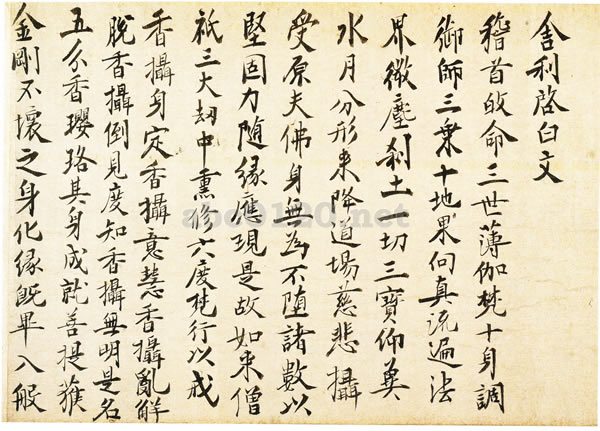 舎利啓白文
稽首敀命三世薄伽梵十身調
御師三乗十地果向真流遍法
界微塵刹土一切三寶仰兾
水月分形来降道場慈悲攝
受原夫佛身無為不堕諸數以
堅固力随縁應現是故如来僧
祇三大劫中熏修六度梵行以戒
香攝身定香攝意慧香攝亂解
脱香攝倒見度知香攝無明是名
五分香瓔珞其身成就菩提獲
金剛不壞之身化縁既畢入般
abc0120.net